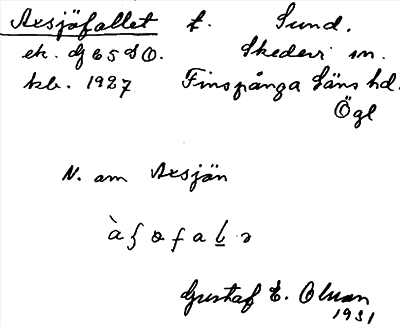 Axsjöfallet t. Sund.
ek. dj 65 SO. Skedevi sn.
kbl. 1927 Finspånga läns hd.
Ögl
N. om Axsjön
Gustaf E. Olsson
1931